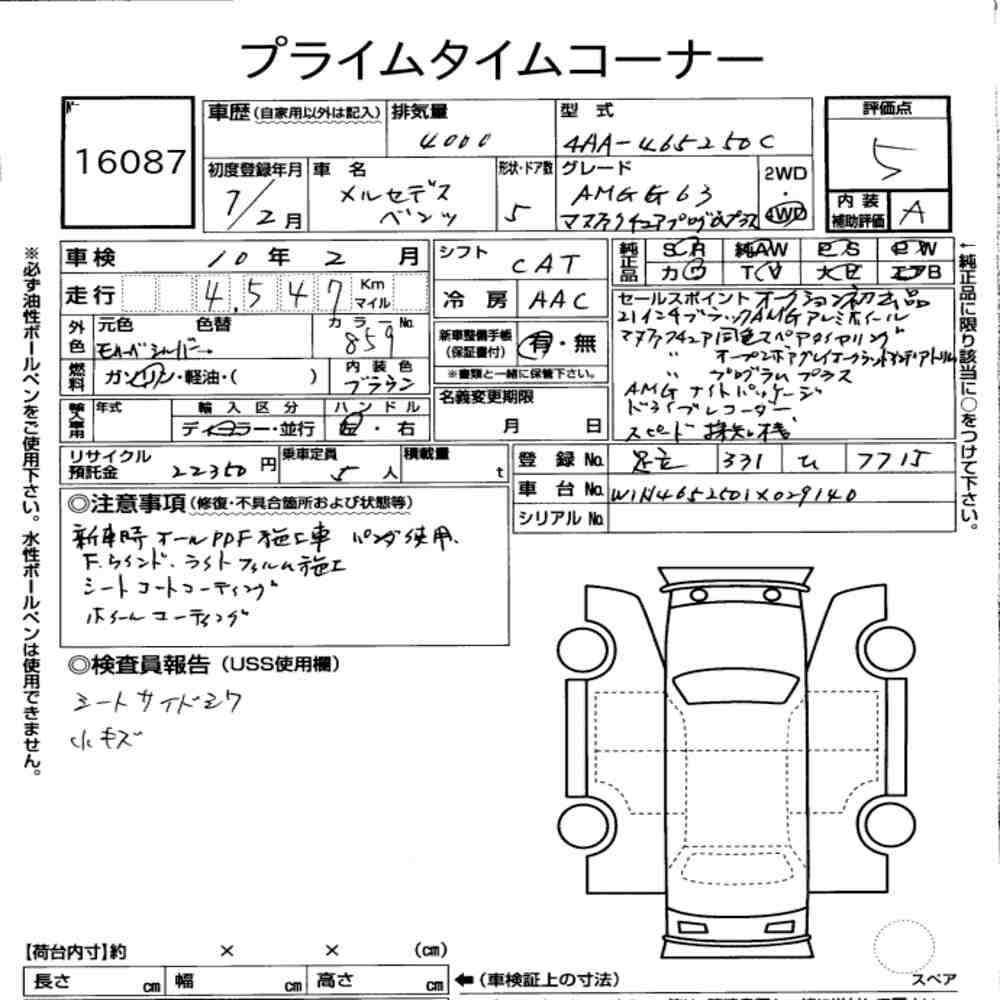 プライムタイムコーナー
16087
車歴(自家用以外は記入) 排気量 型式 評価点
4000 4AA-465250C 5
初度登録年月 車名 形状・ドア数 グレード 2WD・4WD
7/2月 メルセデスベンツ 5 AMG G63
マヌファクチュアプログラムプラス
内装補助評価 A
車検 10年 2月
シフト CAT
純正品 SR 純AW PS PW
カワ TV 大E エアB
走行 4,547 Km マイル
冷房 AAC
セールスポイント オークション初出品
21インチブラックAMGアルミホイール
マヌファクチュア同色スペアタイヤリング
〃 プログラムプラス
AMGナイトパッケージ
ドライブレコーダー
スピード探知機
外色 元色 色替 カラーNo. 859
新車整備手帳(保証書付) 有・無
※書類と一緒に保管下さい。
燃料 ガソリン・軽油・( ) 内装色 ブラウン
名義変更期限 月 日
輸入車用 年式 輸入区分 ハンドル
ディーラー・並行 左・右
リサイクル預託金 22350円 乗車定員 5人 積載量 t
登録No. 足立 331 7715
車台No. W1N4652501X029140
シリアルNo.
◎注意事項(修復・不具合箇所および状態等)
新車時オールPPF施工車 使用.
F.ウインド.ライトフィルム施工
シートコートコーティング
ホイールコーティング
◎検査員報告(USS使用欄)
シートサイドシワ
小キズ
※必ず油性ボールペンをご使用下さい。水性ボールペンは使用できません。
←純正品に限り該当に○をつけて下さい。
【荷台内寸】約 × × (cm)
長さ cm 幅 cm 高さ cm ←(車検証上の寸法)
スペア